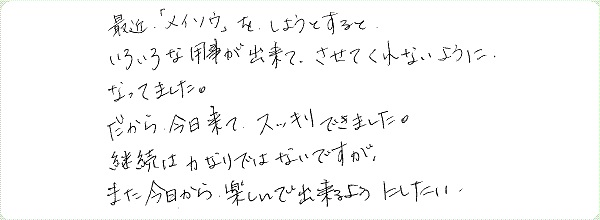 最近、「メイソウ」を、しようとすると、
いろいろな用事が出来て、させてくれないように、
なってました。
だから、今日来て、スッキリできました。
継続は力なりではないですが、
また今日から、楽しんで出来るようにしたい。